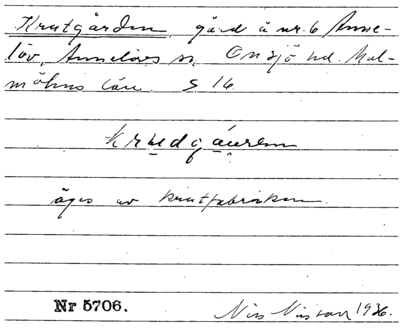 Krutgården, gård å nr. 6 Anne-
löv, Annelövs sn, Onsjö hd. Mal-
möhus län. S 16.
krudgáuren
äges av krutfabriken.
Nr 5706. Nils Nilsson 1936.